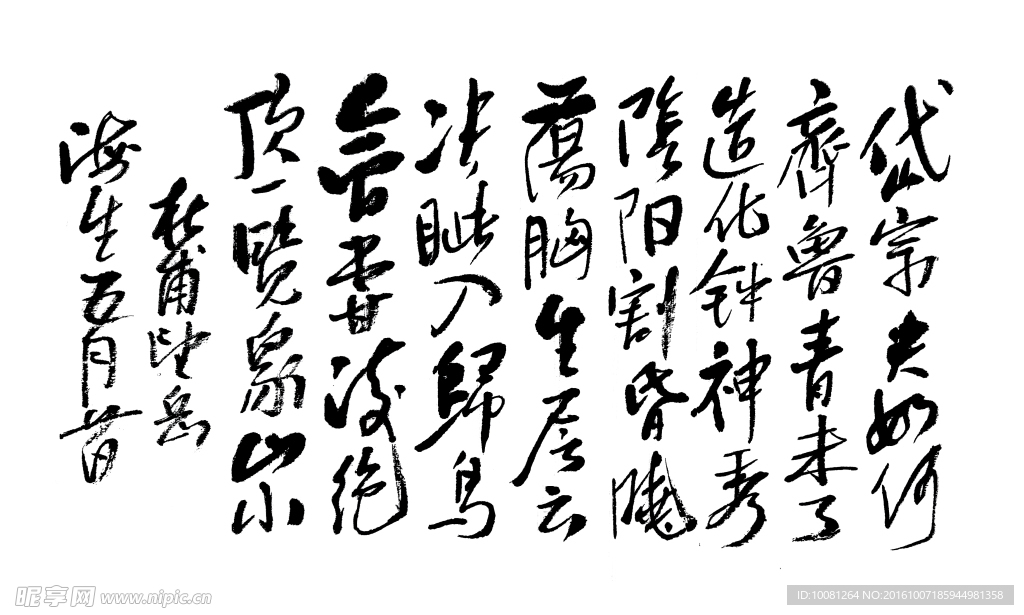 岱宗夫如何
齊魯青未了
造化钟神秀
陰阳割昏曉
蕩胸生层云
决眦入歸鸟
會當凌绝
顶一覽衆山小
杜甫望岳
海生五月
昵享网 www.nipic.cn
ID:10081264 NO:20161007185944981358